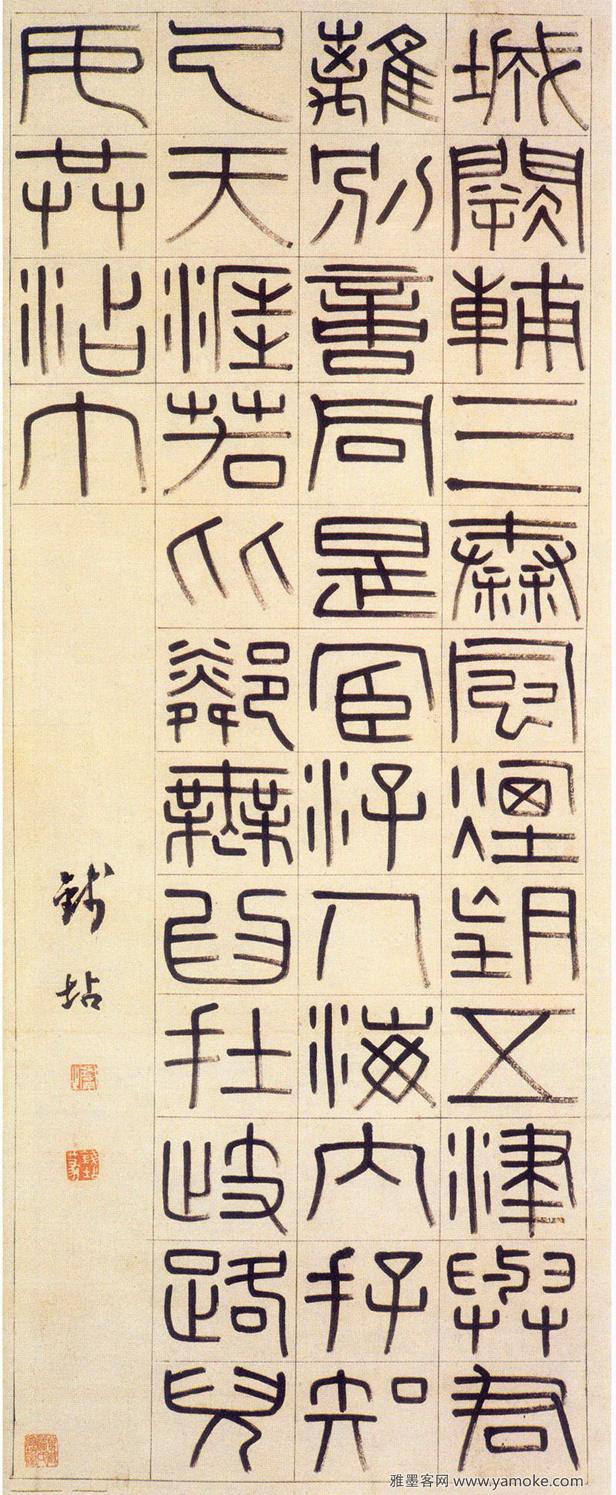 城闕輔三秦風煙望五津與君
離別意同是宦游人海內存知
己天涯若比鄰無為在歧路兒
女共沾巾
錢坫
雅墨客网 www.yamoke.com